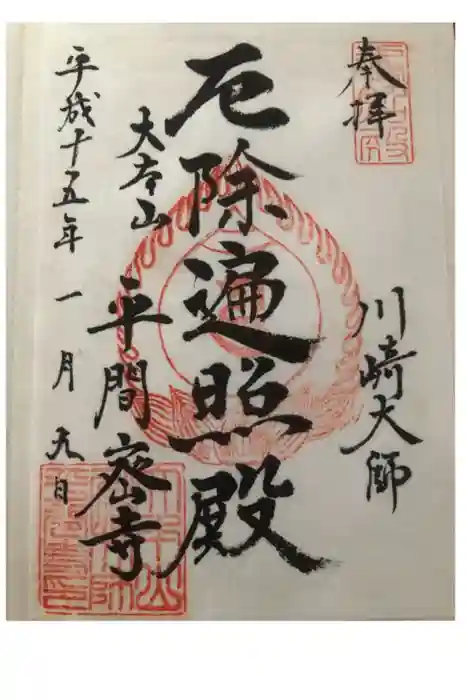 奉拝
川崎大師
厄除遍照殿
大本山
平間密寺
平成十五年一月九日